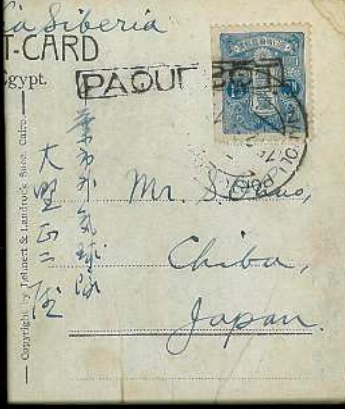 ia Siberia
T-CARD
gypt.
PAQUEBOT
10
Copyright by Lehnert & Landrock Succ. Cairo
葉市外気球隊
大野正二
Mr. S. Ohno,
Chiba,
Japan.